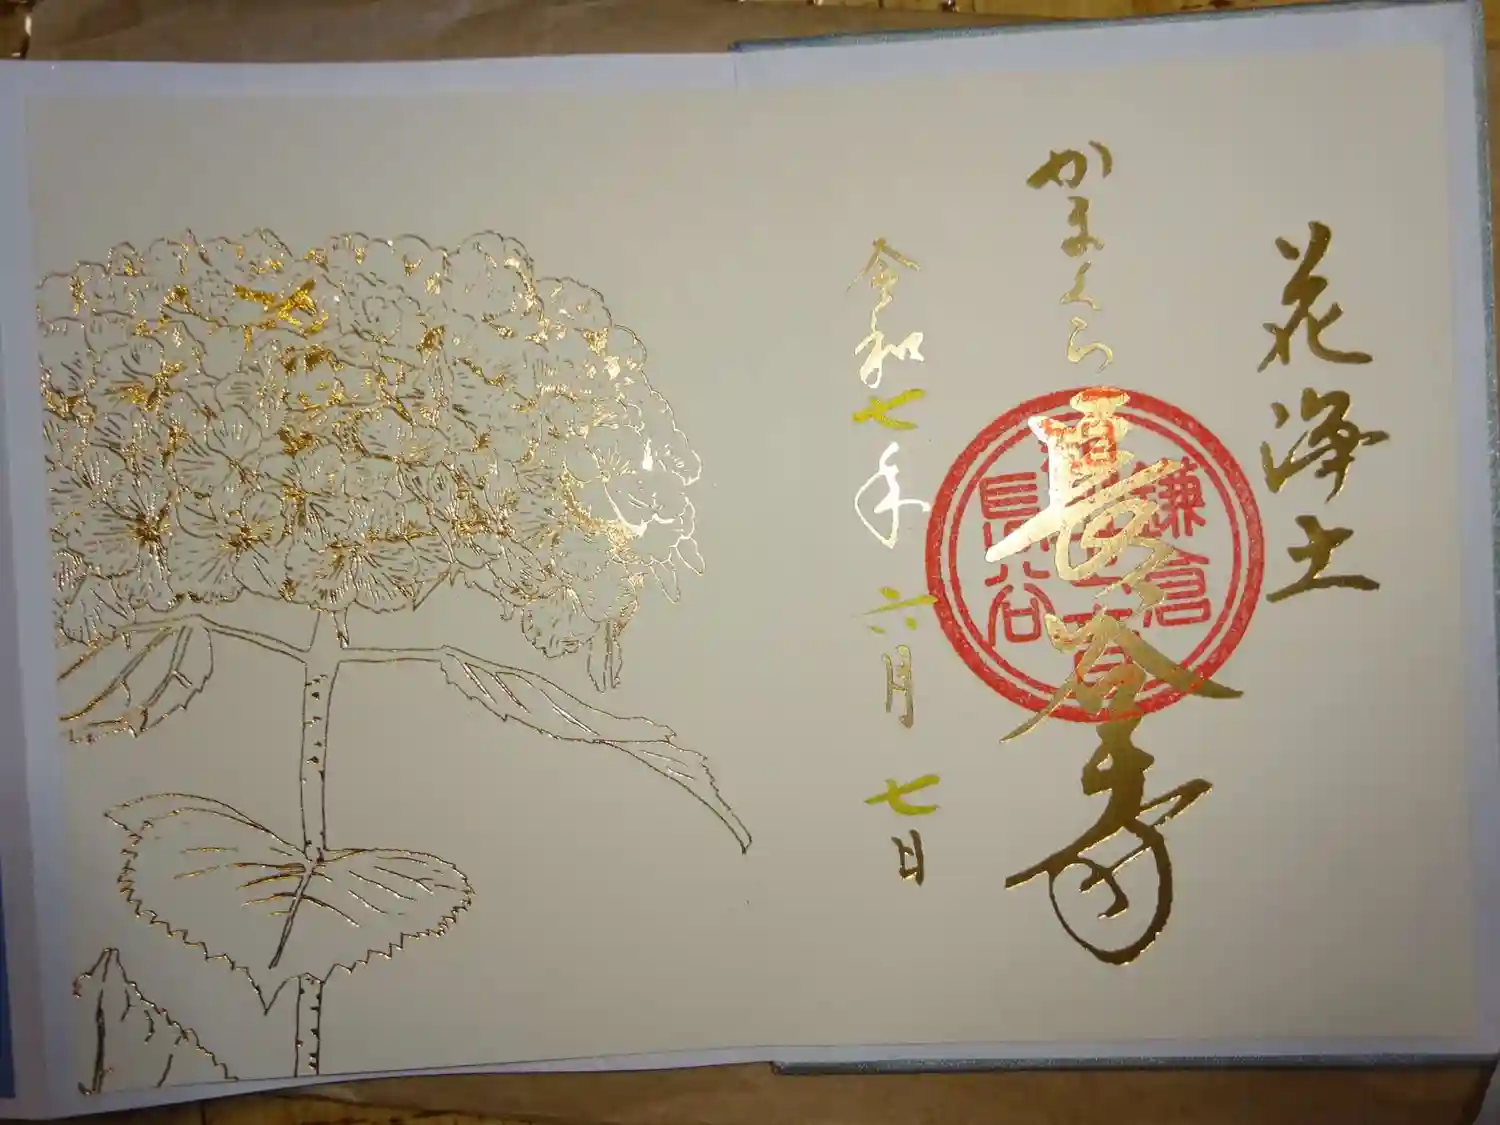 花浄土
かまくら
長谷寺
鎌倉
長谷
令和七年 六月 七日